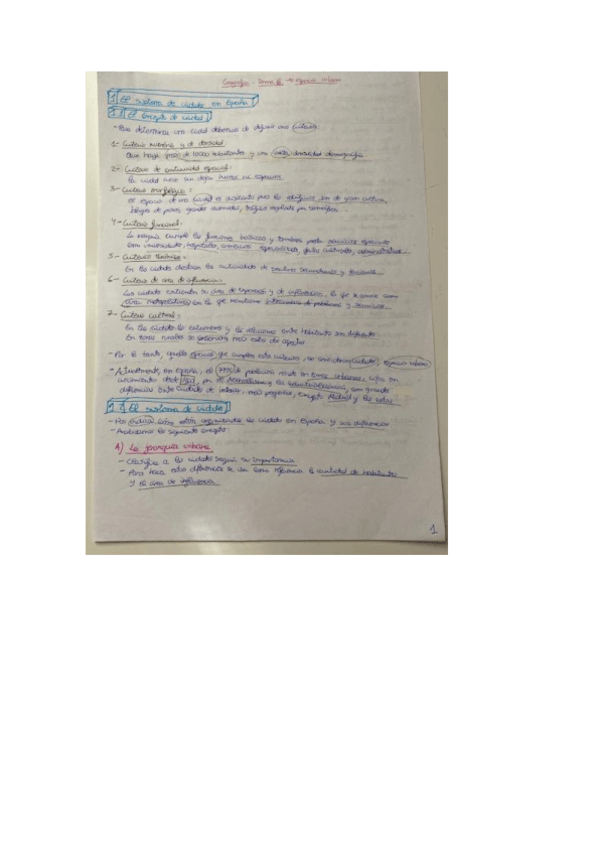 Geografía - Tema 8 → Espacio urbano
1 El sistema de ciudades en España
1.1 El concepto de ciudad
- Para determinar una ciudad debemos de definir unos criterios:
1- Criterio numérico y de densidad
Que haya más de 10000 habitantes y una alta densidad demográfica
2- Criterio de continuidad espacial:
La ciudad crece sin dejar huecos ni espacios.
3- Criterio morfológico:
El espacio de una ciudad es
bloques de pisos, grandes avenidas, tráfico regulado por semáforos.
4- Criterio funcional:
La mayoría cumple las funciones básicas y también presta servicios especiales
como universidades, hospitales, comercios especializados, culturales, administrativos
5- Criterio económico:
En las ciudades destacan las actividades de sectores secundarios y terciarios
6- Criterio de área de influencia:
Las ciudades extienden su área de expansión y de influencia, lo que se conoce como
área metropolitana en la que mantienen intercambios de población y servicios.
7- Criterio cultural:
En las ciudades las costumbres y las relaciones entre habitantes son diferentes.
En zonas rurales se
- Por lo tanto, aquellos espacios que cumplen estos criterios, se consideran ciudades, espacio urbano
- Actualmente, en España, el de población reside en zonas urbanas, cifra en
crecimiento desde por el
diferencias entre ciudades de interior, más pequeñas, excepto Madrid y las costas
1.2 El sistema de ciudades
- Por cómo están organizadas las ciudades en España y sus diferencias
- Analizamos los siguientes
A) La jerarquía urbana
- Clasifica a las ciudades según su importancia
- Para hacer estas diferencias se usa como referencia la cantidad de habitantes
y el área de influencia
1